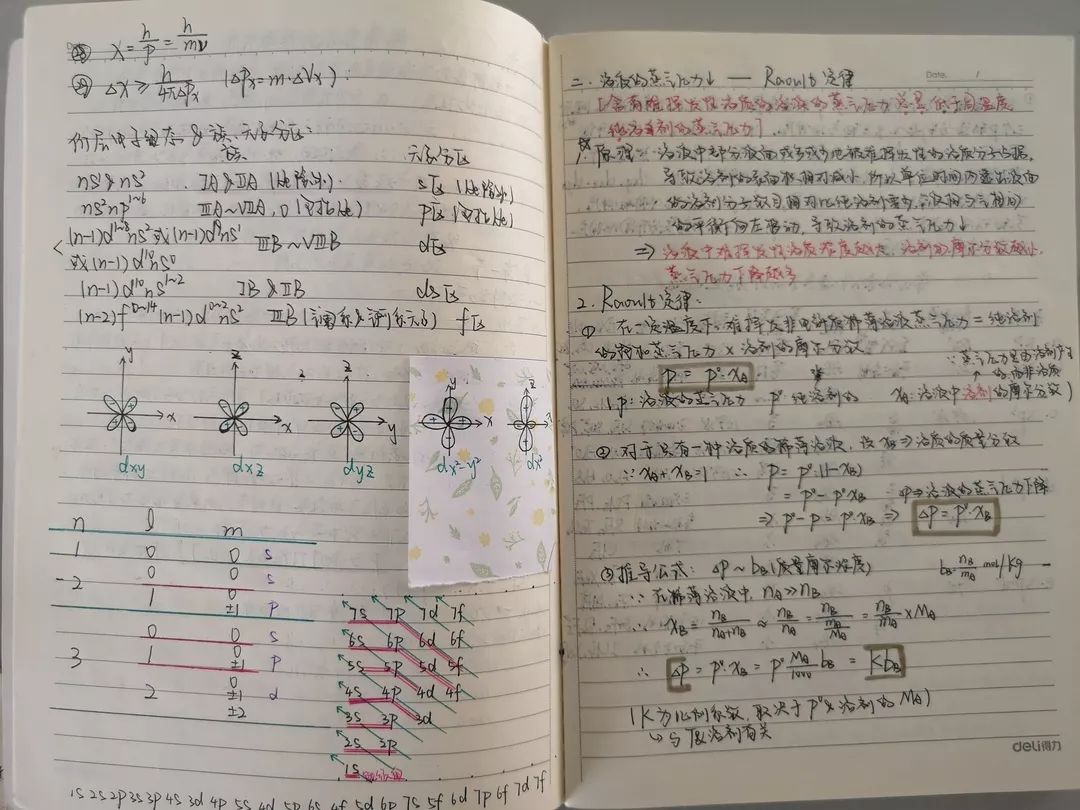 ③ λ = h/p = h/mν
④ Δx ≥ h/4πΔPx (ΔPx = m·ΔVx):
价层电子组态 & 族、元素分区:
族 元素分区
ns¹ & ns² ⅠA & ⅡA (He除外) s区 (He除外)
ns²np¹⁻⁶ ⅢA ~ ⅦA, 0 (包括He) p区 (包括He)
(n-1)d¹⁻⁸ns² 或 (n-1)d⁵ns¹ ⅢB ~ ⅦB d区
或 (n-1)d¹⁰ns⁰
(n-1)d¹⁰ns¹⁻² ⅠB & ⅡB ds区
(n-2)f⁰⁻¹⁴(n-1)d⁰⁻²ns² ⅢB (镧系&锕系元素) f区
y z z y z
x x y x
dxy dxz dyz dx²-y² dz²
n l m
1 0 0 s
2 0 0 s
1 0 ±1 p
3 0 0 s
1 0 ±1 p
2 0 ±1 ±2 d
7s 7p 7d 7f
6s 6p 6d 6f
5s 5p 5d 5f
4s 4p 4d 4f
3s 3p 3d
2s 2p
1s
1s 2s 2p 3s 3p 4s 3d 4p 5s 4d 5p 6s 4f 5d 6p 7s 5f 6d 7p 6f 7d 7f
Date. /
二. 溶液的蒸气压力↓ — Raoult 定律
[含有难挥发性溶质的溶液的蒸气压力总是低于同温度
纯溶剂的蒸气压力]
原理: 溶液中部分液面或多或少地被难挥发性的溶质分子占据,
导致溶剂的表面积相对减小, 所以单位时间内逸出液面
的溶剂分子数目相对比纯溶剂要少.
的平衡向左移动, 导致溶剂的蒸气压力↓
⇒ 溶液中难挥发性溶质浓度越大, 溶剂的摩尔分数越小,
蒸气压力下降越多
2. Raoult 定律:
① 在一定温度下, 难挥发非电解质稀薄溶液蒸气压力 = 纯溶剂
的饱和蒸气压力 × 溶剂的摩尔分数
∵ 蒸气压力是由溶剂产生
的而非溶质
p = p⁰·xA
(p: 溶液的蒸气压力 p⁰: 纯溶剂的 xA: 溶液中溶剂的摩尔分数)
② 对于只有一种溶质的稀薄溶液, 设 xB ⇒ 溶质的质量分数
∵ xA + xB = 1 ∴ p = p⁰(1-xB)
= p⁰ - p⁰xB Δp ⇒ 溶液的蒸气压力下降
⇒ p⁰ - p = p⁰xB ⇒ Δp = p⁰·xB
③ 推导公式: Δp ~ bB (质量摩尔浓度) bB = nB/mA mol/kg
∵ 在稀薄溶液中, nA ≫ nB
∴ xB = nB/(nA+nB) ≈ nB/nA = nB/(mA/MA) = nB/mA × MA
∴ Δp = p⁰·xB = p⁰ MA/1000 bB = KbB
(K为比例系数, 取决于 p⁰ & 溶剂的 MA)
↳ 与T&溶剂有关
deli得力